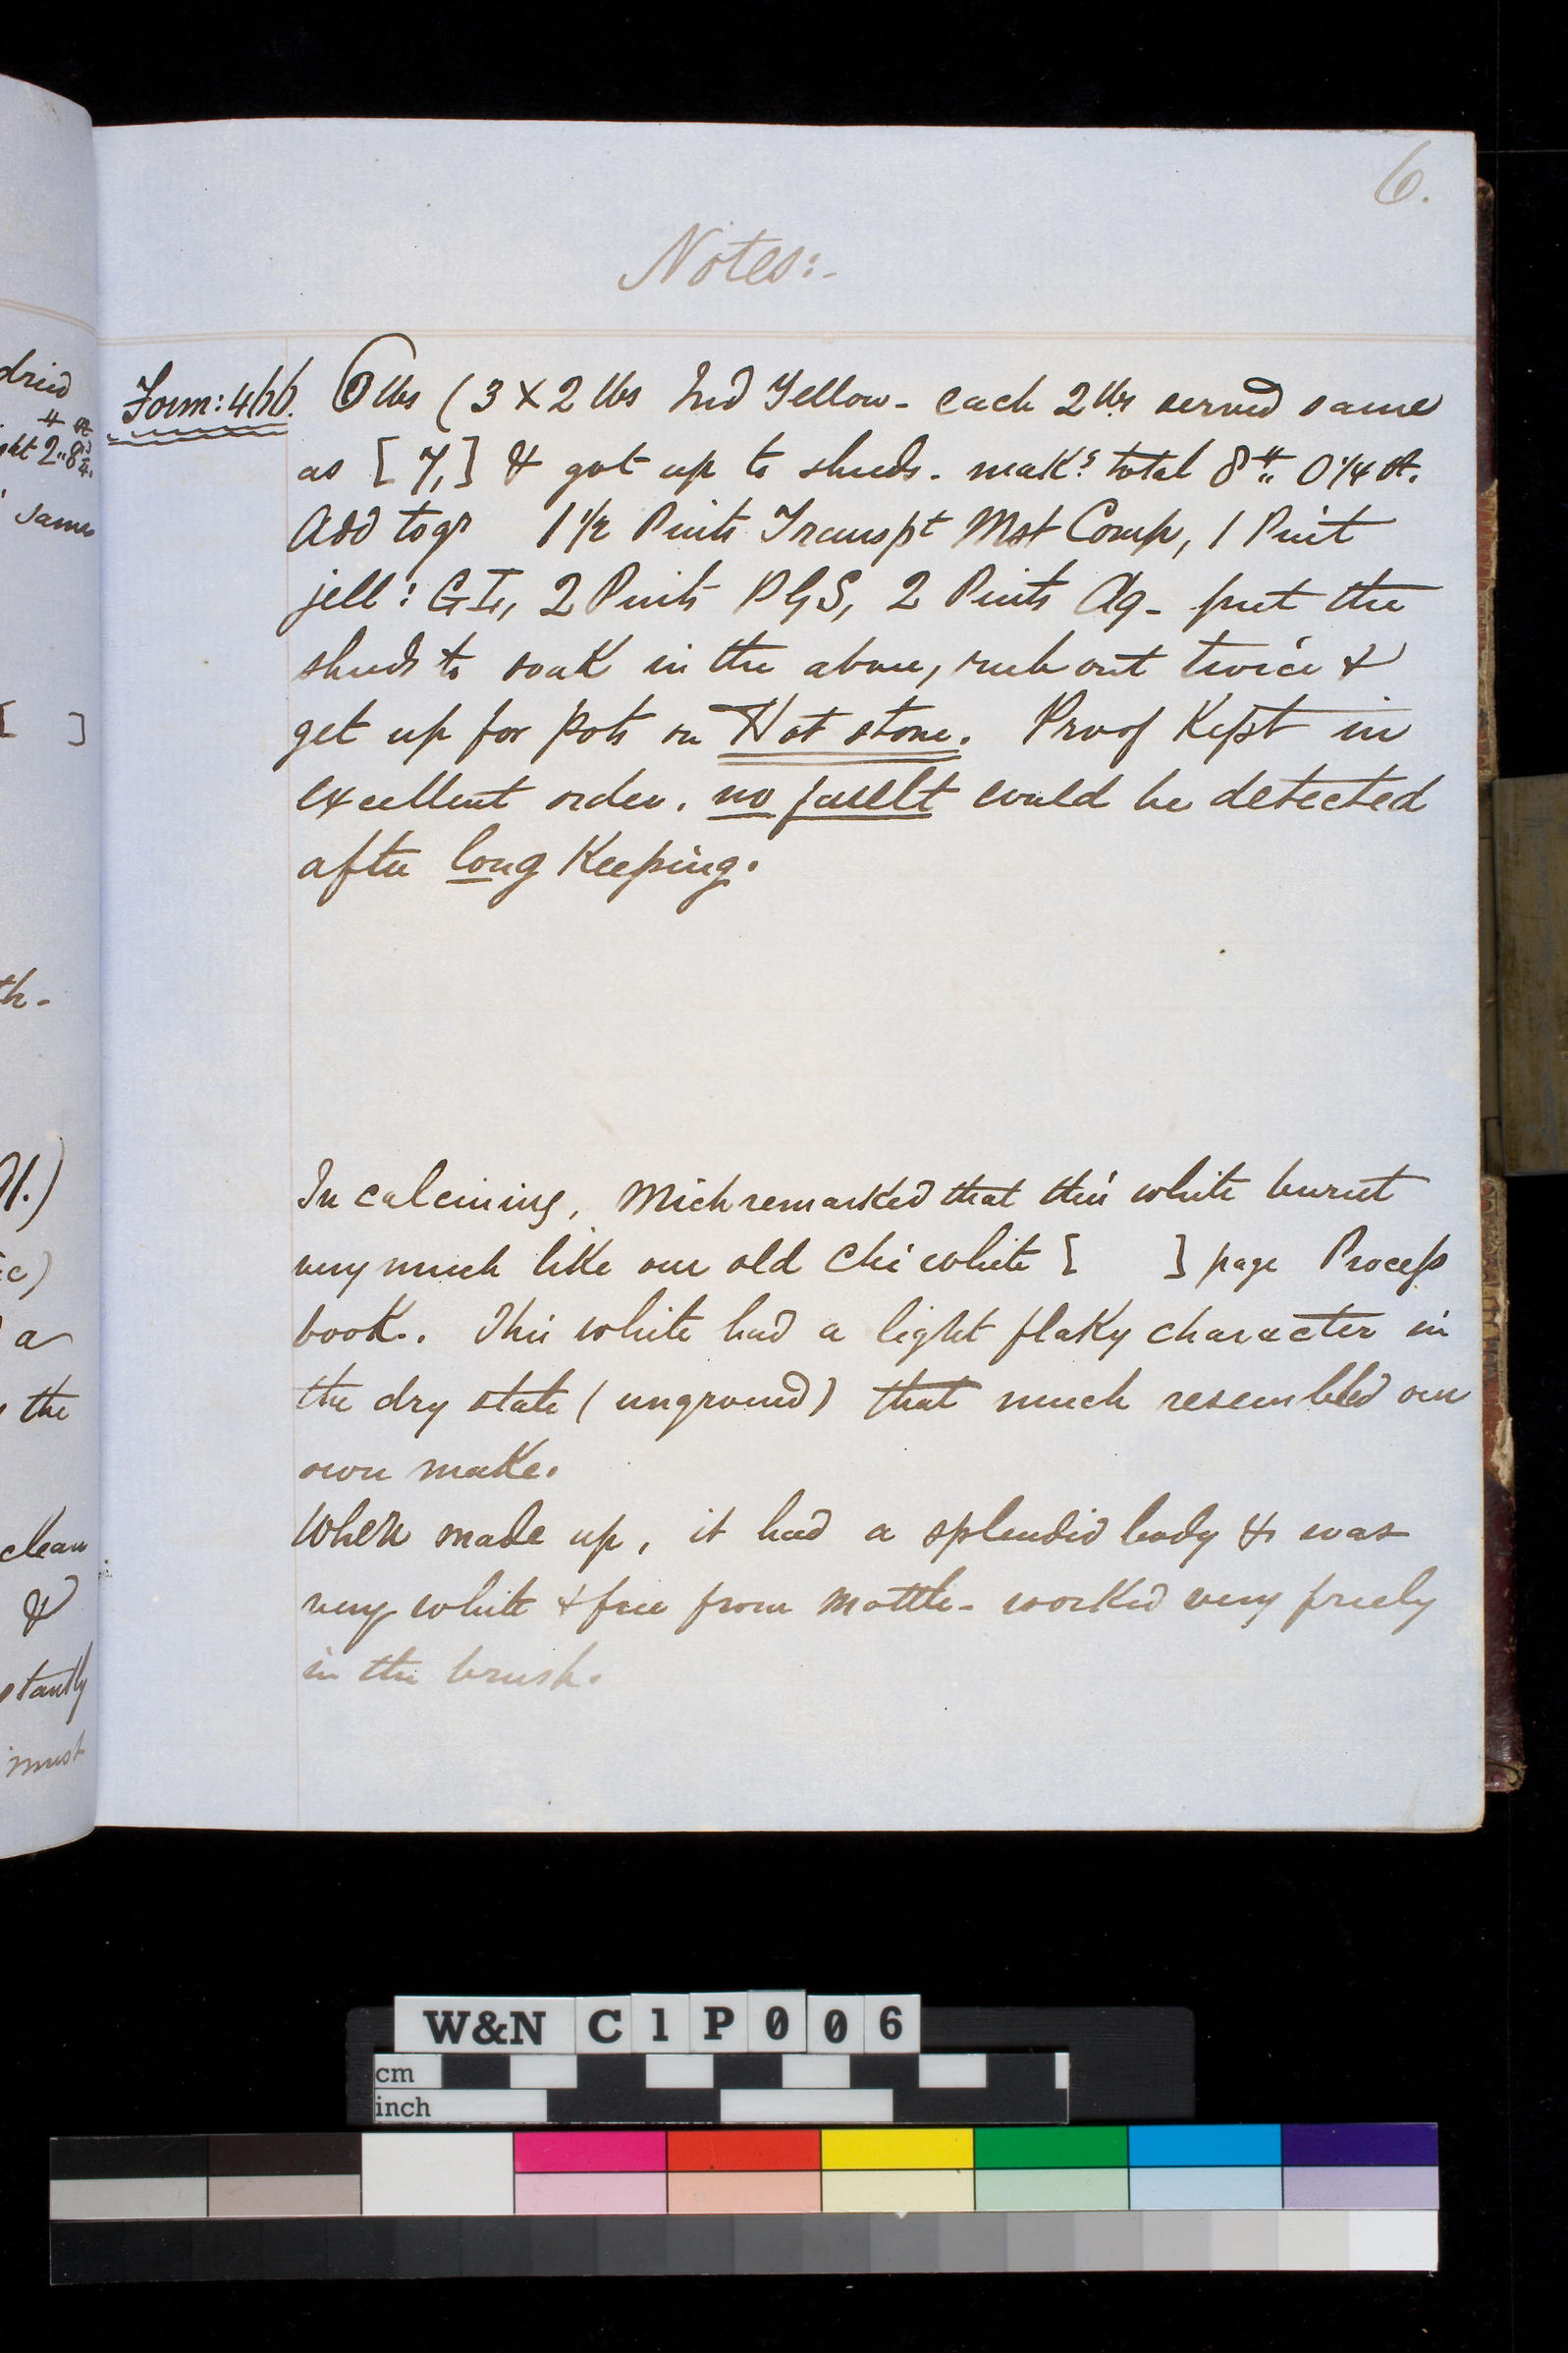 6.
Notes:-
Form: 466. 6 lbs (3 X 2 lbs Ind Yellow - each 2 lbs served same
as [ 7, ] & got up to shreds - mak.s total 8 lb,, 0 1/4 oz.
Add togr 1 1/2 Pints Transpt Mst Comp, 1 Pint
jell: GT, 2 Pints PGS, 2 Pints Aq - put the
shreds to soak in the above, rub out twice &
get up for pots on Hot stone. Proof Kept in
excellent order, no fault could be detected
after long Keeping.
In calcining, Mich remarked that this white burnt
very much like our old Chi white [ ] page Process
book.. This white had a light flaky character in
the dry state (unground) that much resembled our
own make.
When made up, it had a splendid body & was
very white & free from mottle - worked very freely
in the brush.
dried
ght 2,,8 3/4.
same
[ ]
th-
c)
a
the
clean
&
stantly
must
W&N C1P006
cm
inch